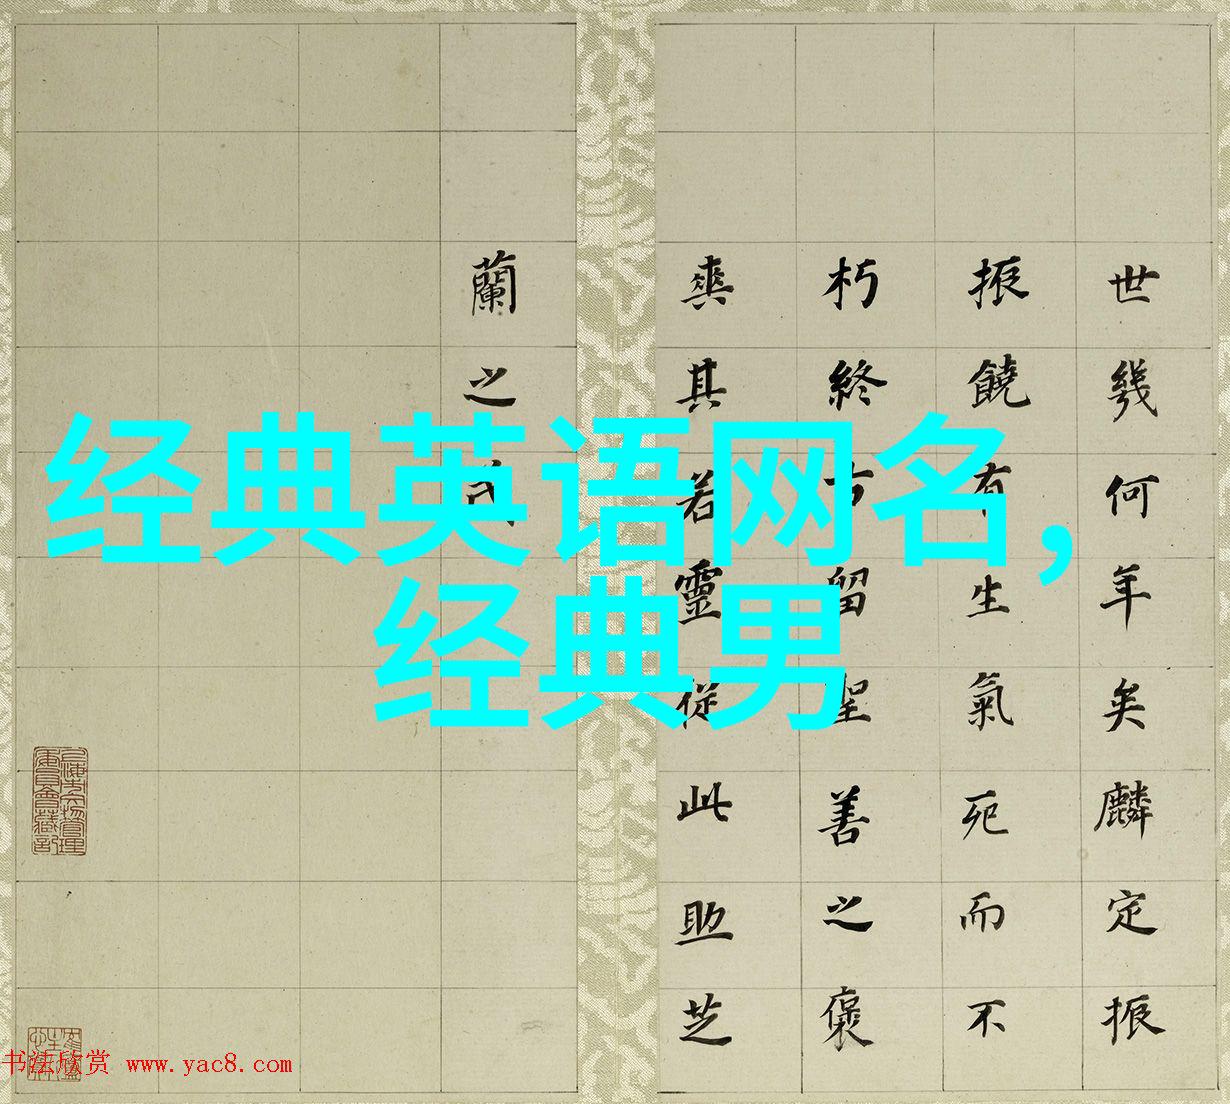 世幾何年矣麟定振
振饒有生氣死而不
朽終留聖善之褒
爽其若靈從此助芝
蘭之
经典英语网名，
经典男
书法欣赏 www.yac8.com